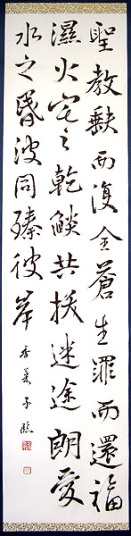 聖教缺而復全蒼生罪而還福
濕火宅之乾燄共拔迷途朗愛
水之昏波同臻彼岸
臨